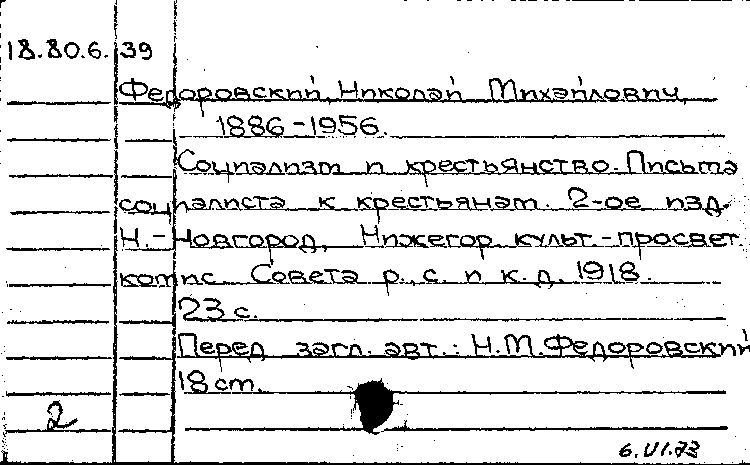 18.80.6. 39
Федоровский, Николай Михайлович,
1886-1956.
Социализм и крестьянство. Письма
социалиста к крестьянам. 2-ое изд.
Н.-Новгород, Нижегор. культ.-просвет.
комис. Совета р., с. и к.д. 1918.
23 с.
Перед загл. авт.: Н.М.Федоровский
18 cm.
2
6.VI.73